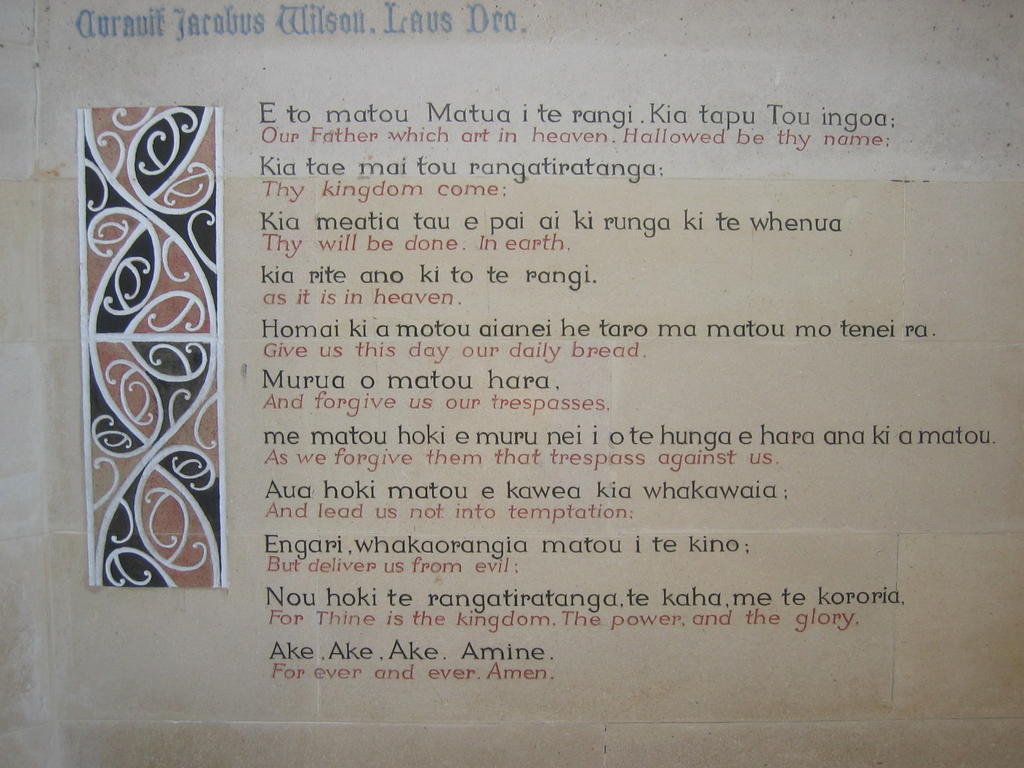 Curavit Jacobus Wilson. Laus Deo.
E to matou Matua i te rangi. Kia tapu Tou ingoa;
Our Father which art in heaven. Hallowed be thy name;
Kia tae mai tou rangatiratanga;
Thy kingdom come;
Kia meatia tau e pai ai ki runga ki te whenua
Thy will be done. In earth,
kia rite ano ki to te rangi.
as it is in heaven.
Homai ki a motou aianei he taro ma matou mo tenei ra.
Give us this day our daily bread.
Murua o matou hara,
And forgive us our trespasses,
me matou hoki e muru nei i o te hunga e hara ana ki a matou.
As we forgive them that trespass against us.
Aua hoki matou e kawea kia whakawaia;
And lead us not into temptation;
Engari, whakaorangia matou i te kino;
But deliver us from evil;
Nou hoki te rangatiratanga, te kaha, me te kororia,
For Thine is the kingdom. The power, and the glory,
Ake, Ake, Ake. Amine.
For ever and ever. Amen.